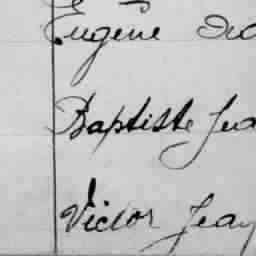 Eugène
Baptiste
Victor Jean